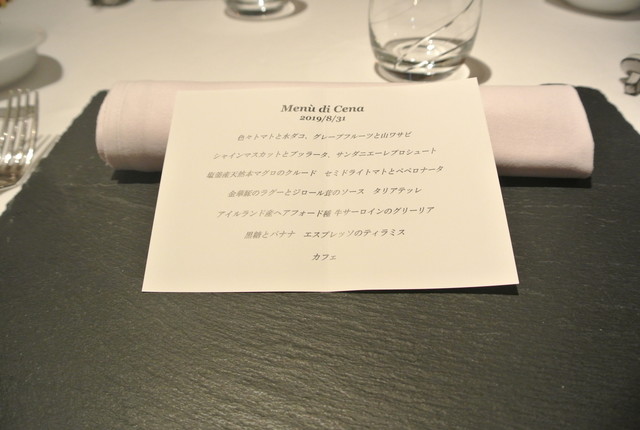 Menù di Cena
2019/8/31
色々トマトと水ダコ、グレープフルーツと山ワサビ
シャインマスカットとブッラータ、サンダニエーレプロシュート
塩釜産天然本マグロのクルード セミドライトマトとペペロナータ
金華豚のラグーとジロール茸のソース タリアテッレ
アイルランド産ヘアフォード種 牛サーロインのグリーリア
黒糖とバナナ エスプレッソのティラミス
カフェ